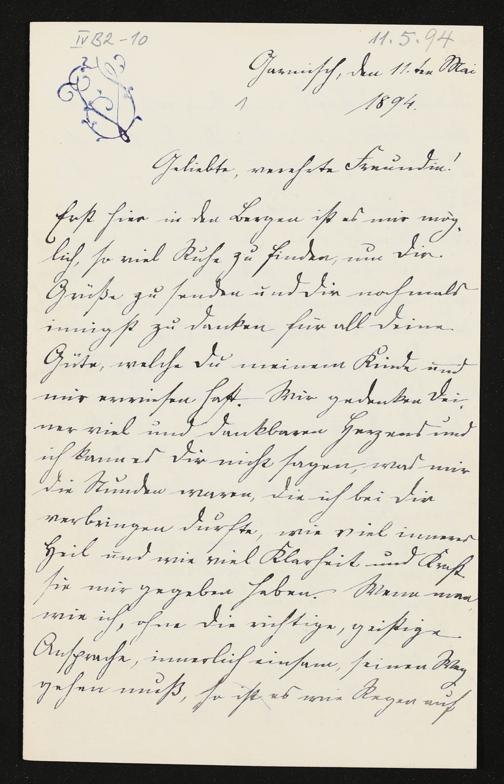 IV B2-10
11.5.94
Garmisch, den 11. ten Mai
1894.
Geliebte, verehrte Freundin!
Erst hier in den Bergen ist es mir mög-
lich, so viel Ruhe zu finden, um Dir
Grüße zu senden und Dir nochmals
innigst zu danken für all Deine
Güte, welche Du meinem Kinde und
mir erwiesen hast. Wir gedenken Dei-
ner viel und dankbaren Herzens und
ich kann es Dir nicht sagen, was mir
die Stunden waren, die ich bei Dir
verbringen durfte, wie viel inneres
Heil und wie viel Klarheit und Kraft
sie mir gegeben haben. Wenn man
wie ich, ohne die richtige, geistige
Ansprache, innerlich einsam, seinen Weg
gehen muß, so ist es wie Regen auf